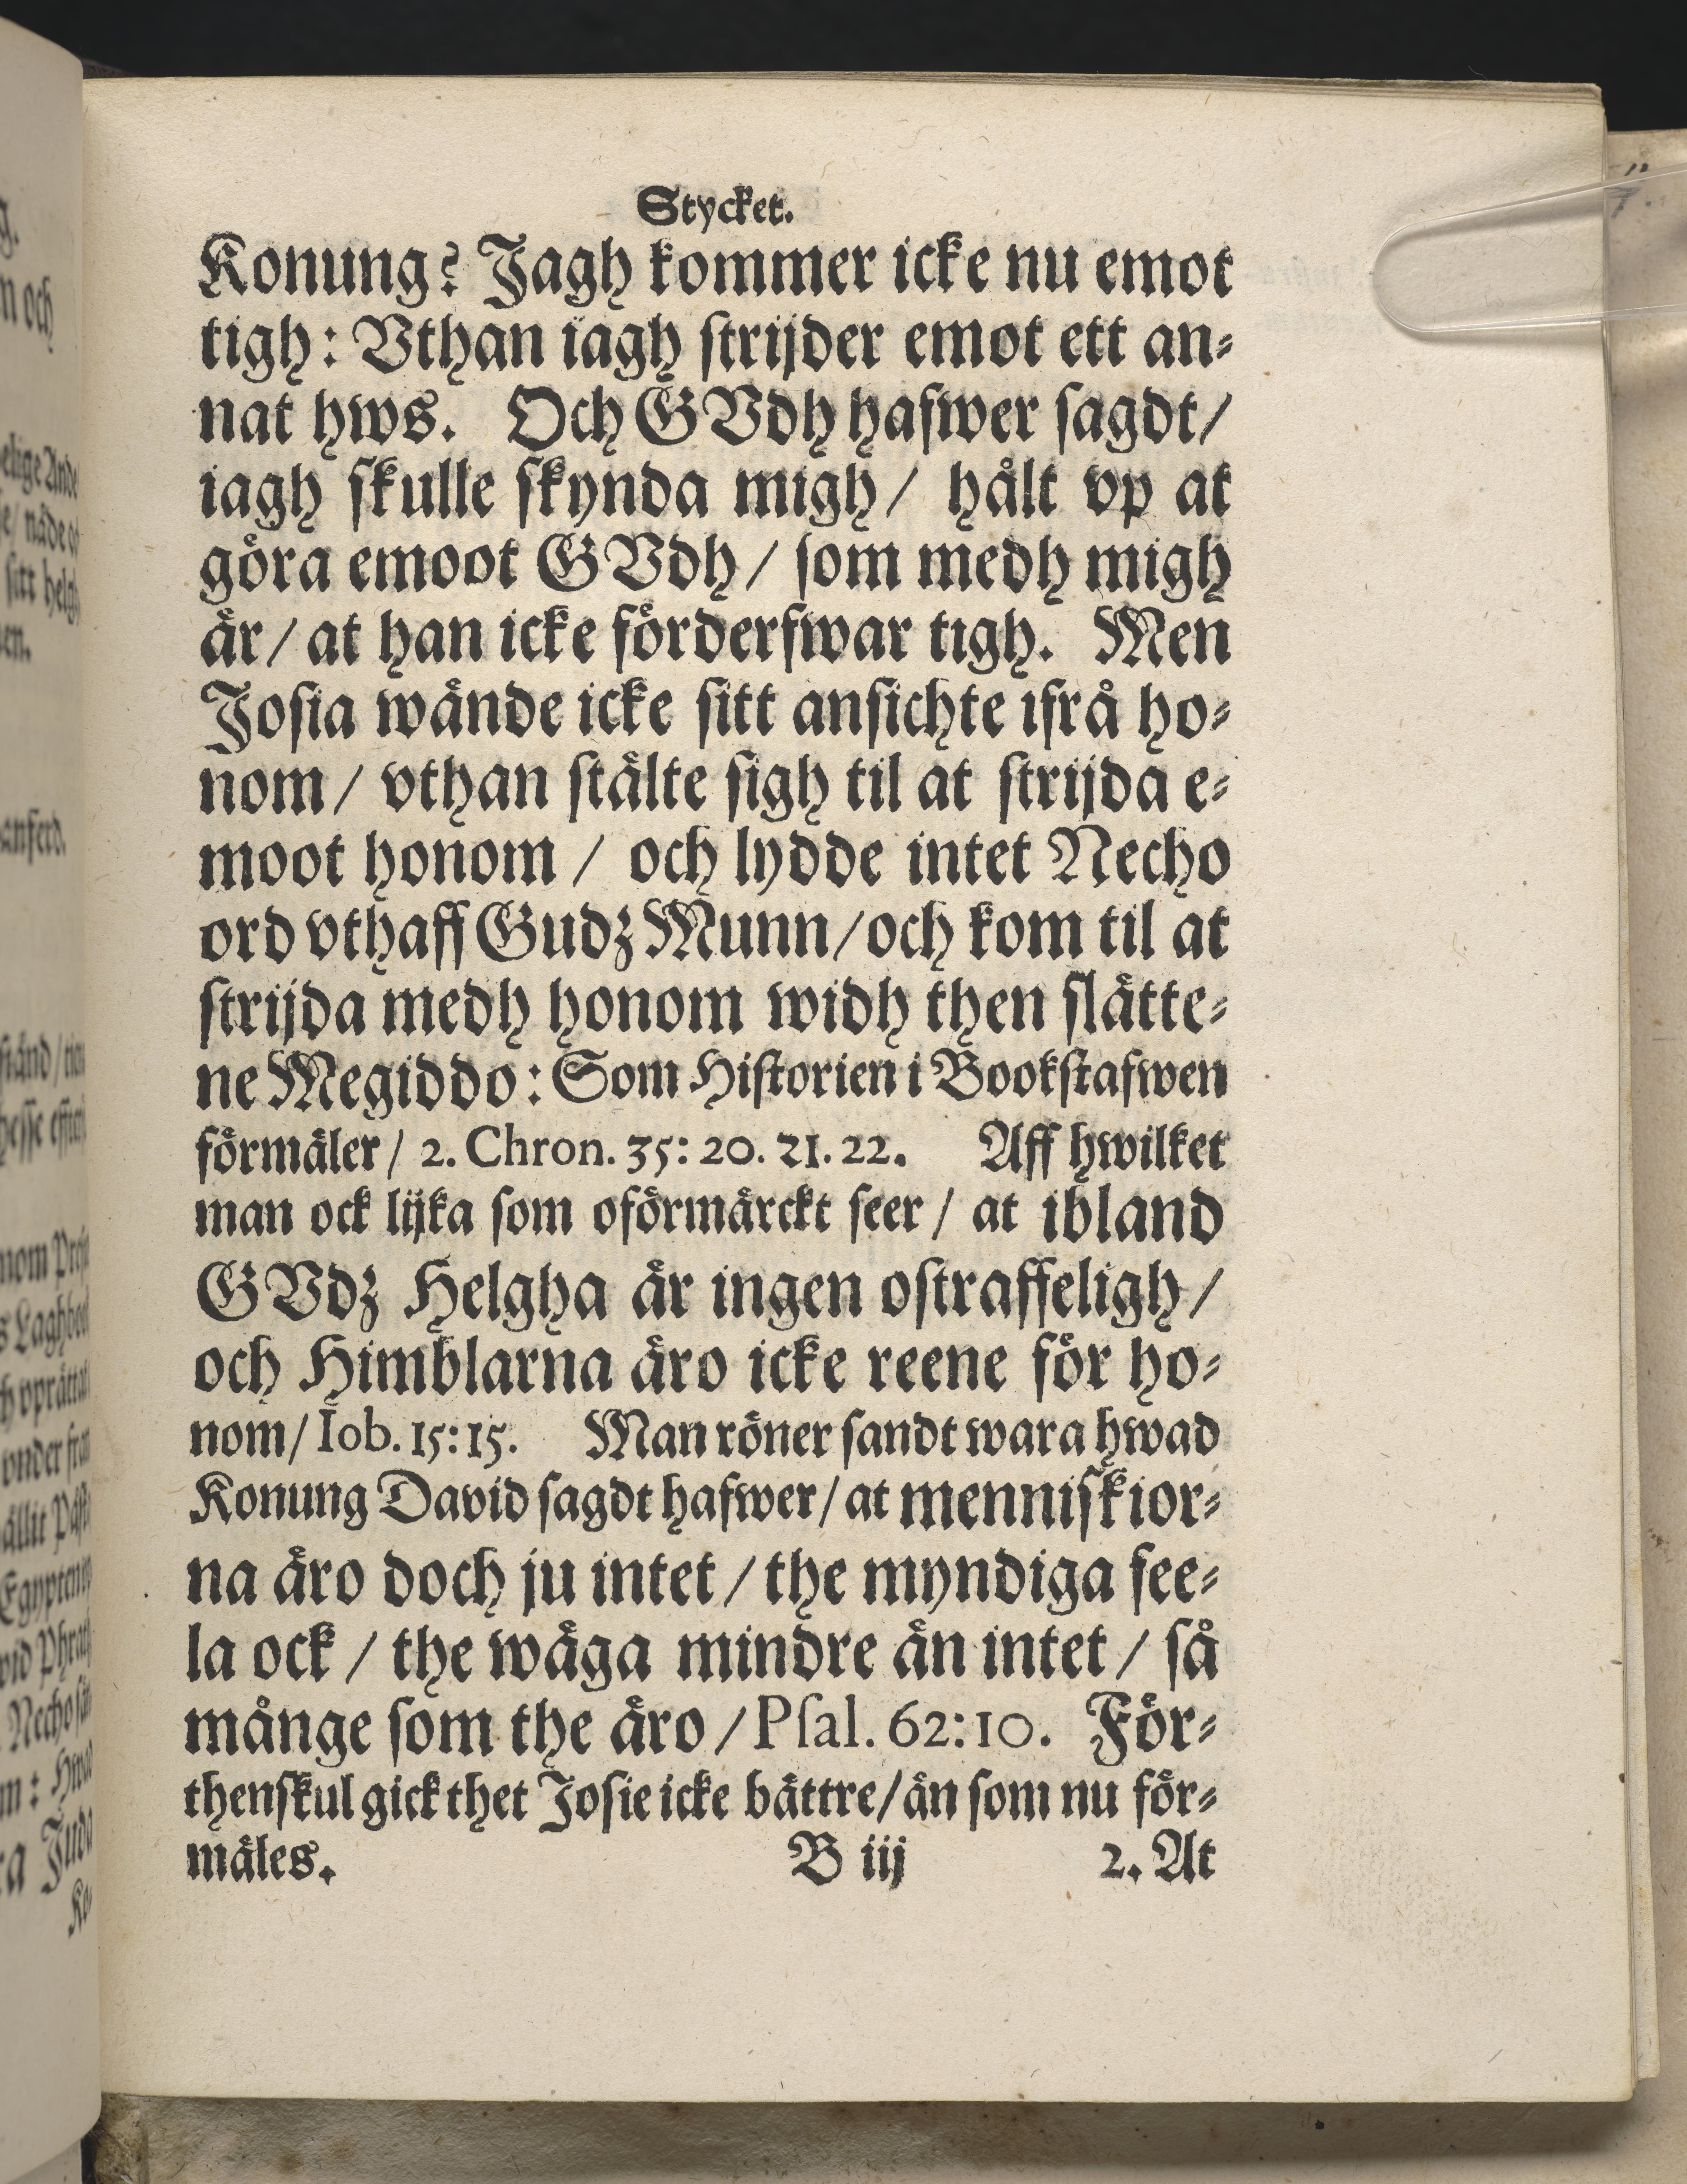 Stycket.
Konung? Jagh kommer icke nu emot
tigh: Vthan iagh strijder emot ett an⸗
nat hws. Och GVdh hafwer sagdt/
iagh skulle skynda migh/ hålt vp at
göra emoot GVdh/ som medh migh
är/ at han icke förderfwar tigh. Men
Josia wände icke sitt ansichte ifrå ho⸗
nom/ vthan stälte sigh til at strijda e⸗
moot honom/ och lydde intet Necho
ord vthaff Gudz Munn/ och kom til at
strijda medh honom widh then slätte⸗
ne Megiddo: Som Historien i Bookstafwen
förmäler/ 2. Chron. 35: 20. 21. 22. Aff hwilket
man ock lijka som oförmärckt seer/ at ibland
GVdz Helgha är ingen ostraffeligh/
och Himblarna äro icke reene för ho⸗
nom/ Iob. 15: 15. Man röner sandt wara hwad
Konung David sagdt hafwer/ at menniskior⸗
na äro doch ju intet/ the myndiga fee⸗
la ock/ the wäga mindre än intet/ så
månge som the äro/ Psal. 62:10. För⸗
thenskul gick thet Josie icke bättre/ än som nu för⸗
mäles. B iij 2. At